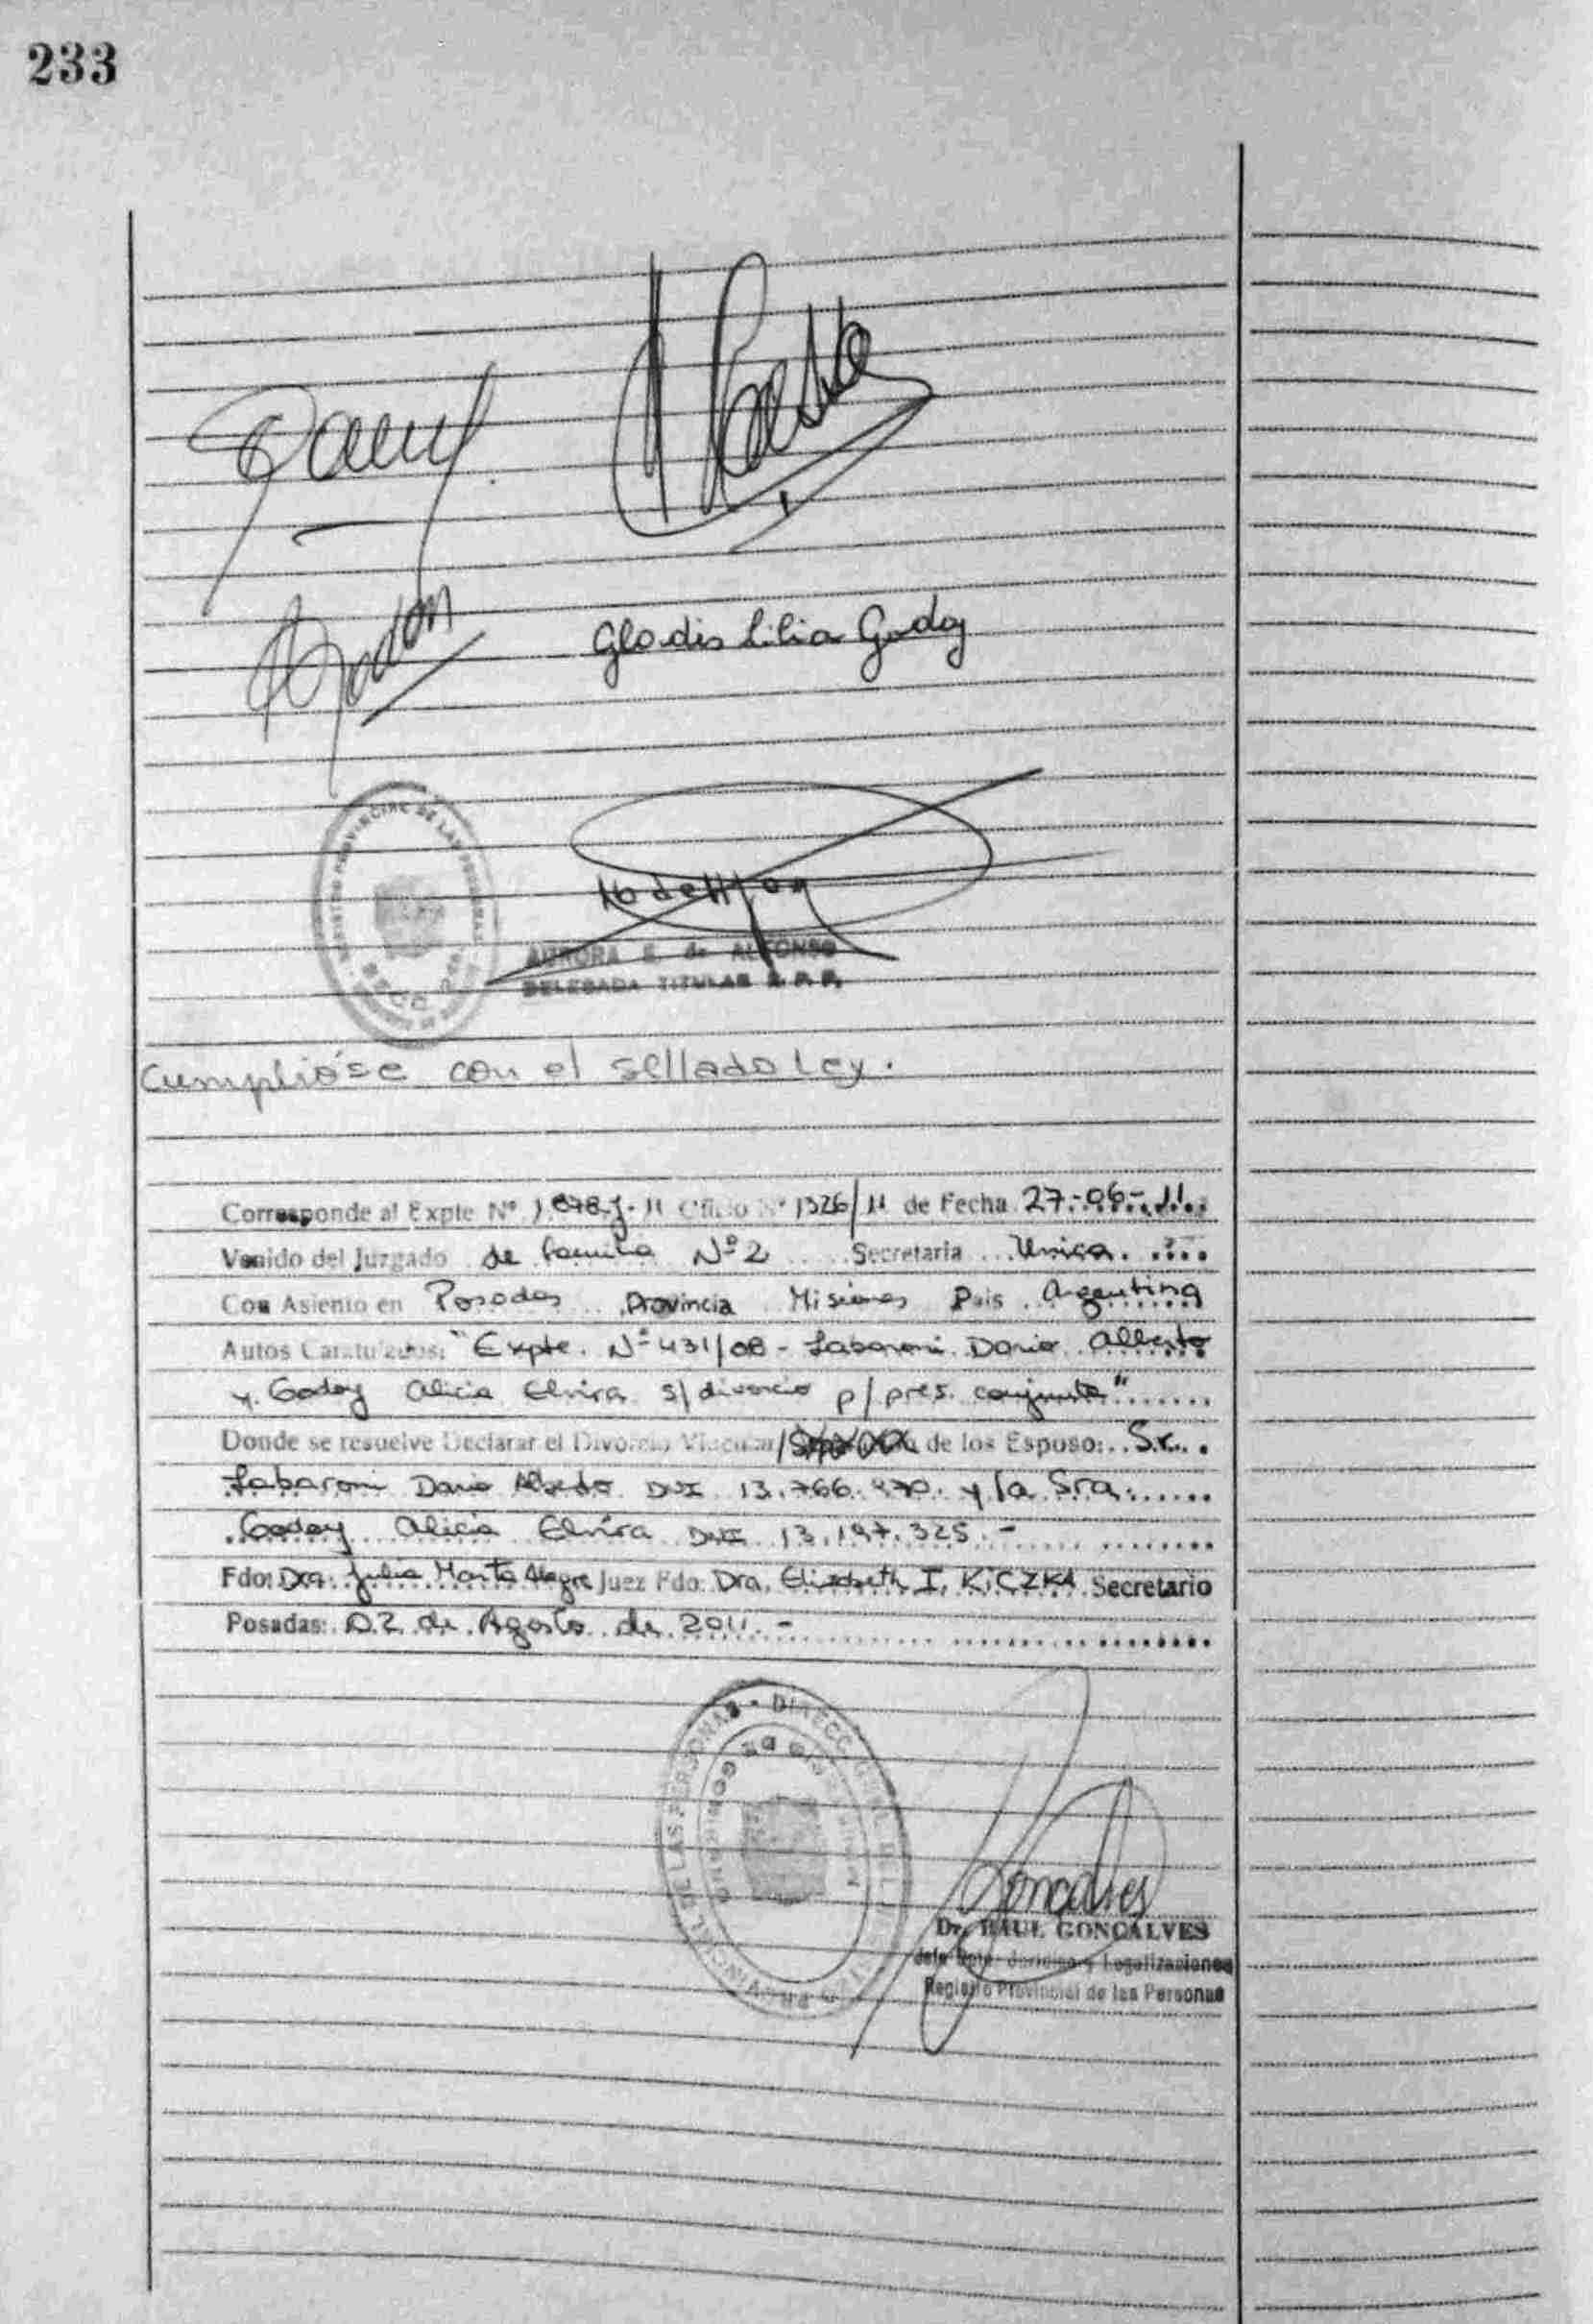 233
Gladis Lilia Godoy
AURORA E. de ALFONSO
DELEGADA TITULAR R. P. P.
Cumplióse con el sellado Ley.
Corresponde al Expte Nº 1878-J-11 Oficio Nº 1326/11 de Fecha 27-06-11
Venido del Juzgado de Familia Nº 2 Secretaria Unica.
Con Asiento en Posadas Provincia Misiones Pais Argentina
Autos Caratulados: "Expte. Nº 431/08 - Labaroni Dario Alberto
y Godoy Alicia Elvira s/ divorcio p/ pres. conjunta"
Donde se resuelve Declarar el Divorcio Vincular/ de los Esposo: Sr.
Labaroni Dario Alberto DNI 13.766.470. y la Sra.
Godoy Alicia Elvira DNI 13.197.325.-
Fdo: Dra. Julia Marta Alegre Juez Fdo: Dra. Elizabeth I. KICZKA Secretario
Posadas: 02 de Agosto de 2011.-
Dr. RAUL GONCALVES
Jefe Dpto. Jurídico y Legalizaciones
Registro Provincial de las Personas